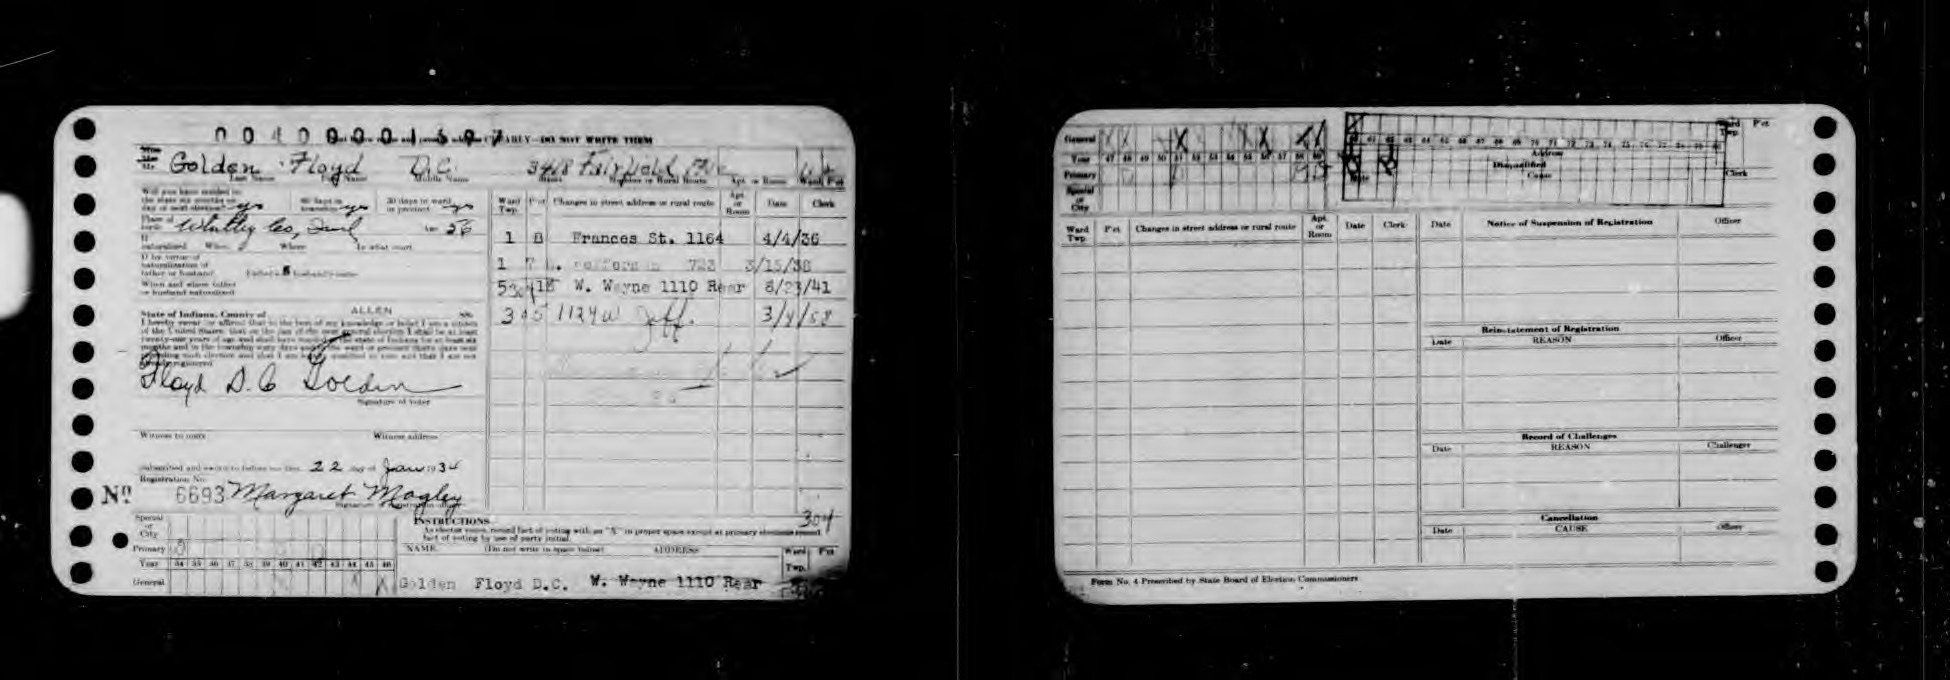 00400001597
CLEARLY—DO NOT WRITE THEM
Golden Floyd D.C. 3418 Fairfield Ave
Last Name First Name Middle Name Number or Rural Route Apt. or Room Ward P'ct
Will you have resided in
the state six months on
day of next election? yes
60 days in
township yes
30 days in ward
or precinct yes
Place of
birth Whitley Co, Ind Age 26
If
naturalized When Where In what court
If by virtue of
naturalization of
father or husband
When and where father
or husband naturalized
State of Indiana, County of ALLEN SS:
I hereby swear (or affirm) that to the best of my knowledge or belief I am a citizen
of the United States, that on the day of the next general election I shall be at least
twenty-one years of age and shall have resided in the state of Indiana for at least six
months and in the township sixty days and in the ward or precinct thirty days next
preceding such election and that I am
registered
Floyd D. C Golden
Signature of voter
Witness to mark Witness address
Subscribed and sworn to before me this 22 day of Jan 1934
Registration No.
No 6693 Margaret Magley
Signature of Registration Officer
Ward
Twp. P'ct Changes in street address or rural route Apt.
or
Room Date Clerk
1 8 Frances St. 1164 4/4/36
1 7 723 3/15/38
W. Wayne 1110 Rear 8/23/41
1124 W Jeff. 3/4/58
304
INSTRUCTIONS
As elector votes, record fact of voting with an "X" in proper space except at primary elections record
fact of voting by use of party initial.
Special
or
City
Primary
Year 34 35 36 37 38 39 40 41 42 43 44 45 46
General X X
NAME (Do not write in space below) ADDRESS Ward
Twp. P'ct
Golden Floyd D.C. W. Wayne 1110 Rear
General X X X X X X X
Year 47 48 49 50 51 52 53 54 55 56 57 58 59
Primary
Special
or
City
60 61 62 63 64 65 66 67 68 69 70 71 72 73 74 75 76 77 78 79 80
Ward
Twp. P'ct
Address
Disqualified
Date Cause Clerk
Ward
Twp. P'ct Changes in street address or rural route Apt.
or
Room Date Clerk
Date Notice of Suspension of Registration Officer
Reinstatement of Registration
Date REASON Officer
Record of Challenges
Date REASON Challenger
Cancellation
Date CAUSE Officer
Form No. 4 Prescribed by State Board of Election Commissioners